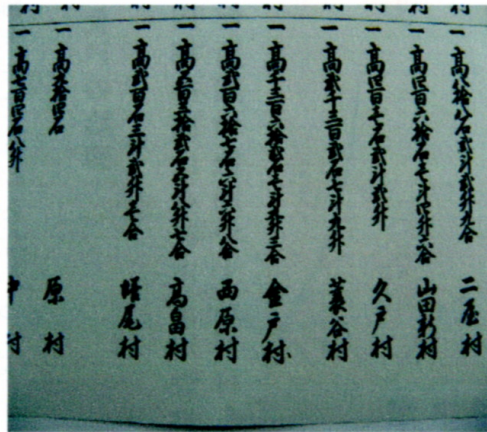 一高八拾八石弐斗弐升九合 二屋村
一高四百六拾石七斗四升六合 山田新村
一高四百七石弐斗弐升 久戸村
一高弐千三百弐石七斗九升 蓑谷村
一高千三百六拾弐石七斗九升三合 金戸村
一高弐百六拾七石六斗六升八合 西原村
一高三百三拾弐石三斗八升七合 高畠村
一高弐百石三斗弐升七合 塔尾村
一高 拾四石 原村
一高 百四石八升 中村